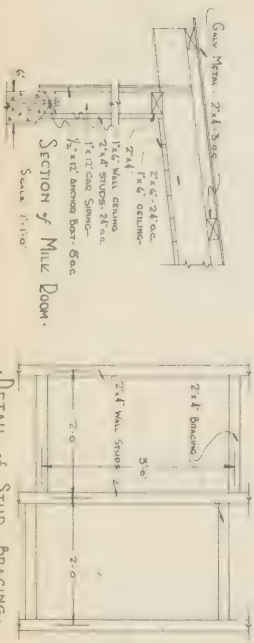 GALV METAL - 2"x4"-3' O.C.
2"x6"-24" O.C.
1"x6" CEILING-
2"x4"
1"x6" WALL CEILING
2"x4" STUDS-24" O.C.
1"x12" CAR SIDING-
1/2"x12" ANCHOR BOLT-8' O.C.
6"
SECTION of MILK ROOM.
SCALE 1"=1'-0"
2"x4" BRACING.
3'-0"
2"x4" WALL STUDS
2-0
2-0
.DETAIL of STUD BRACING.